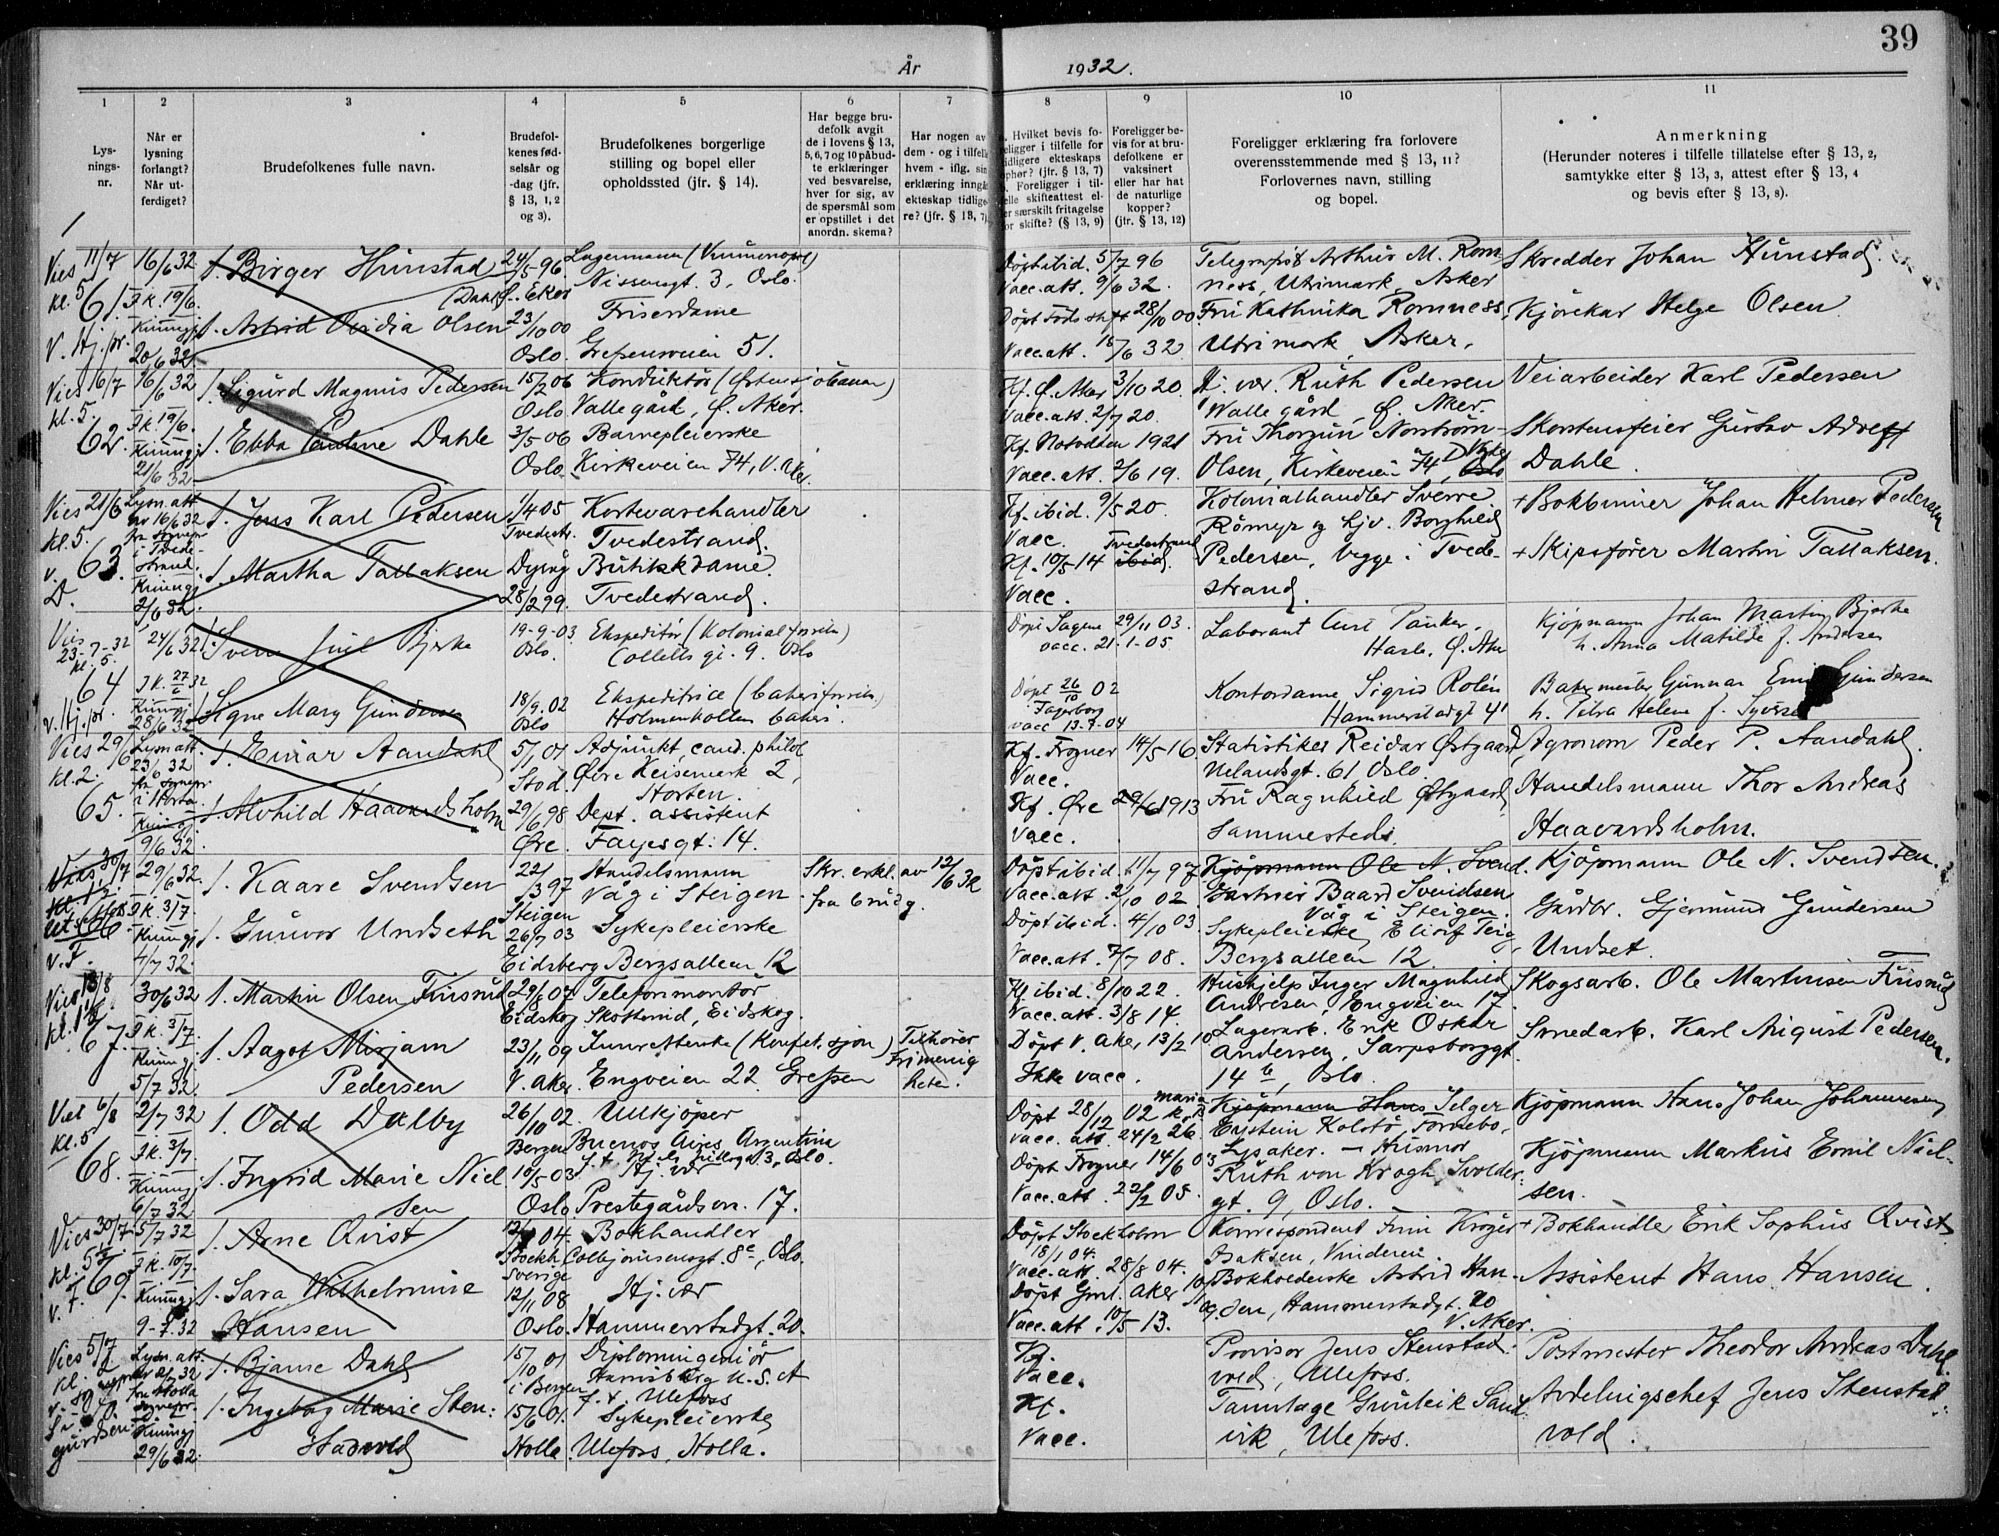 39
År 1932.
1 2 3 4 5 6 7 8 9 10 11
Lysningsnr.
Når er lysning forlangt? Når utferdiget?
Brudefolkenes fulle navn.
Brudefolkenes fødselsår og -dag (jfr. § 13, 1, 2 og 3).
Brudefolkenes borgerlige stilling og bopel eller opholdssted (jfr. § 14).
Har begge brudefolk avgit de i lovens § 13, 5, 6, 7 og 10 påbudte erklæringer ved besvarelse, hver for sig, av de spørsmål som er opstillet i det anordn. skema?
Har nogen av dem - og i tilfelle hvem - iflg. sin erklæring inngå ekteskap tidligere? (jfr. § 13, 7)
Hvilket bevis foreligger i tilfelle for tidligere ekteskaps ophør? (jfr. § 13, 7)
Foreligger i tilfelle skifteattest eller særskilt fritagelse for skifte? (§ 13, 9)
Foreligger bevis for at brudefolkene er vaksinert eller har hat de naturlige kopper? (jfr. § 13, 12)
Foreligger erklæring fra forlovere overensstemmende med § 13, 11? Forlovernes navn, stilling og bopel.
Anmerkning (Herunder noteres i tilfelle tillatelse efter § 13, 2, samtykke efter § 13, 3, attest efter § 13, 4 og bevis efter § 13, 8).
Vies 11/7 kl. 5
61.
V. Hj.pr.
16/6 32
I k. 19/6.
20/6 32
1. Birger Hunstad
1. Astrid Olsen
24/5 96
23/10 00
Oslo.
Nissensgt. 3, Oslo.
Friserdame
Grefsenveien 51.
Døpt ibid. 5/7 96
Vacc. att. 9/6 32.
28/10 00.
Vacc. att. 15/6 32
Arthur M. Romness, Utrimark, Asker
Fru Kathinka Romness,
Utrimark, Asker.
Skredder Johan Hunstad.
Kjørekar Helge Olsen
Vies 16/7 kl. 5.
62.
16/6 32
I k. 19/6.
21/6 32
1. Sigurd Magnus Pedersen
1. Ebba Pauline Dahle
15/2 06
Oslo
3/5 06
Oslo
Konduktør (Østensjøbanen)
Valle gård, Ø. Aker.
Barnepleierske
Kirkeveien 74, V. Aker
Kf. Ø. Aker 3/10 20.
Vacc. att. 2/7 20.
Kf. Notodden 1921
Vacc. att. 2/6 19.
Hj. vær. Ruth Pedersen
Walle gård, Ø. Aker.
Fru Thorgun Norstrøm-
Olsen, Kirkeveien 74,
Veiarbeider Karl Pedersen
Skorstensfeier Gustav Adolf
Dahle.
Vies 21/6 kl. 5.
63.
Lysn. att. av 16/6 32
fra sognepr. i Tvedestrand.
2/6 32.
1. Jens Karl Pedersen
1. Martha Tallaksen
1/4 05
Tvedestr.
Dypvåg
28/2 99.
Kortevarehandler
Tvedestrand.
Butikkdame.
Tvedestrand.
Kf. ibid. 9/5 20.
Vacc.
Tvedestrand
Kf. 10/5 14 ibid.
Vacc.
Kolonialhandler Sverre
Rømyr og Hjv. Borghild
Pedersen, begge i Tvede-
strand.
+ Bokbinner Johan Helmer Pedersen
+ Skipsfører Martin Tallaksen.
Vies 23-7-32 kl. 5.
64
v. Hj.pr.
24/6 32
I K. 27/6 32
28/6 32
1. Sverre Juel Bjerke
1. Signe Mary Gundersen
19-9-03
Oslo.
18/9. 02
Oslo
Ekspeditør (Kolonialforretn.)
Colletts gt. 9. Oslo
Ekspeditrice (bakeriforretn.)
Holmenkollen bakeri.
Døpt Sagene 29/11 03.
vacc. 21-1-05
Døpt 26/10 02
Fagerborg
vacc 13-7-04
Laborant Curt Pauker.
Hasle. Ø. Aker
Kontordame Sigrid Rolén
Hammerstadgt 41
Kjøpmann Johan Martin Bjerke
h. Anna Matilde f. Andersen
Bakermester Gunnar Emil Gundersen
h. Petra Helene f. Syversen
Vies 29/6 kl. 2.
65.
Lysn. att. 23/6 32
9/6 32.
1. Einar Aandahl
1. Alvhild Haavardsholm
5/1 01
Stod.
29/6 98
Øre.
Adjunkt cand. philol
Øvre Keisemark 2,
Horten.
Dept. assistent
Fayesgt. 14.
Kf. Frogner 14/5 16.
Vacc.
Kf. Øre 29/6 1913
Vacc.
Statistiker Reidar Østgaard
Uelandsgt. 61 Oslo.
Fru Ragnhild Østgaard
sammesteds.
Agronom Peder P. Aandahl.
Handelsmann Thor Andreas
Haavardsholm.
Vies 30/7
66
v. F.
29/6 32.
I k. 3/7.
4/7 32.
1. Kaare Svendsen
1. Gunvor Undseth
22/3 97
Steigen
26/7 03
Eidsberg
Handelsmann
Våg i Steigen
Sykepleierske
Bergsalleen 12
Skr. erkl. av 12/6 32
fra brudg.
Døpt ibid. 11/7 97
Vacc. att. 2/10 02.
Døpt ibid. 4/10 03.
Vacc. att. 7/7 08.
Kjøpmann Ole N. Svend.
Gartner Baard Svendsen
Våg i Steigen.
Sykepleierske Eliof Teig
Bergsalleen 12.
Kjøpmann Ole N. Svendsen.
Gårdbr. Gjermund Gundersen
Undset.
Vies 13/8
67.
30/6 32
I k. 3/7.
5/7 32.
1. Martin Olsen Fusrud
1. Aagot Mirjam
Pedersen
Eidskog
23/11 09
V. Aker.
Telefonmontør
Skotterud, Eidskog.
Innretterske (Konfeksjon)
Engveien 22 Grefsen
Tilhører
Frimenig
heten.
Kf. ibid. 8/10 22.
Vacc. att. 3/8 14.
Døpt V. Aker 13/2 10
Ikke vacc.
Hushjelp Inger Magnhild
Andresen, Engveien 17.
Lagerarb. Erik Oskar
Andersen, Sarpsborggt.
14 b, Oslo.
Skogsarb. Ole Martinsen Fusrud
Smedarb. Karl August Pedersen.
Viet 6/8 kl. 5
68.
2/7 32
I k. 3/7.
6/7 32.
1. Odd Dalby
1. Ingrid Marie Niel
sen
26/10 02.
Bergen
10/5 03
Oslo
Ullkjøper
Buenos Aires, Argentina
Hj. vær
Prestegårdsvn. 17.
Døpt 28/12 02
vacc. att. 24/2 26.
Døpt Frogner 14/6 03
Vacc. att. 22/2 05.
Kjøpmann Hans Selger
Eystein Kolstø Fornebo,
Lysaker. - Husmor
Ruth von Krogh Svolder-
gt. 9, Oslo.
Kjøpmann Hans Johan Johannesen
Kjøpmann Markus Emil Niel-
sen.
Vies 30/7
69.
v. F.
5/7 32
I k. 10/7.
9-7.32
1. Arne Qvist
1. Sara Wilhelmine
Hansen
04.
Stockh.
Sverige
12/11 08
Oslo.
Bokhandler
Colbjørnsensgt. 8c, Oslo.
Hj. vær
Hammerstadgt. 20.
Døpt Stockholm
18/1 04.
Vacc. att. 28/8 04.
Døpt Gml. Aker
Vacc. att. 10/5 13.
Korrespondent Finn Krøyer
Isaksen, Vinderen.
Bokholderske Astrid Han-
sen, Hammerstadgt. 20
V. Aker.
+ Bokhandler Erik Sophus Qvist
Assistent Hans Hansen
Vies 5/7
70
Lysn. att.
29/6 32.
1. Bjarne Dahl
1. Ingeborg Marie Sten-
stadvold
15/10 01
i Bergen
15/6 01.
Holla.
Diplomingeniør
Harrisburg U.S.A
f. t. Ulefoss
Sykepleierske
Ulefoss, Holla.
Kf.
Vacc.
Kf.
Vacc.
Provisor Jens Stenstad-
vold, Ulefoss.
Tannlæge Gunleik Sand-
vik, Ulefoss.
Postmester Theodor Andreas Dahl.
Avdelingschef Jens Stenstad-
vold.